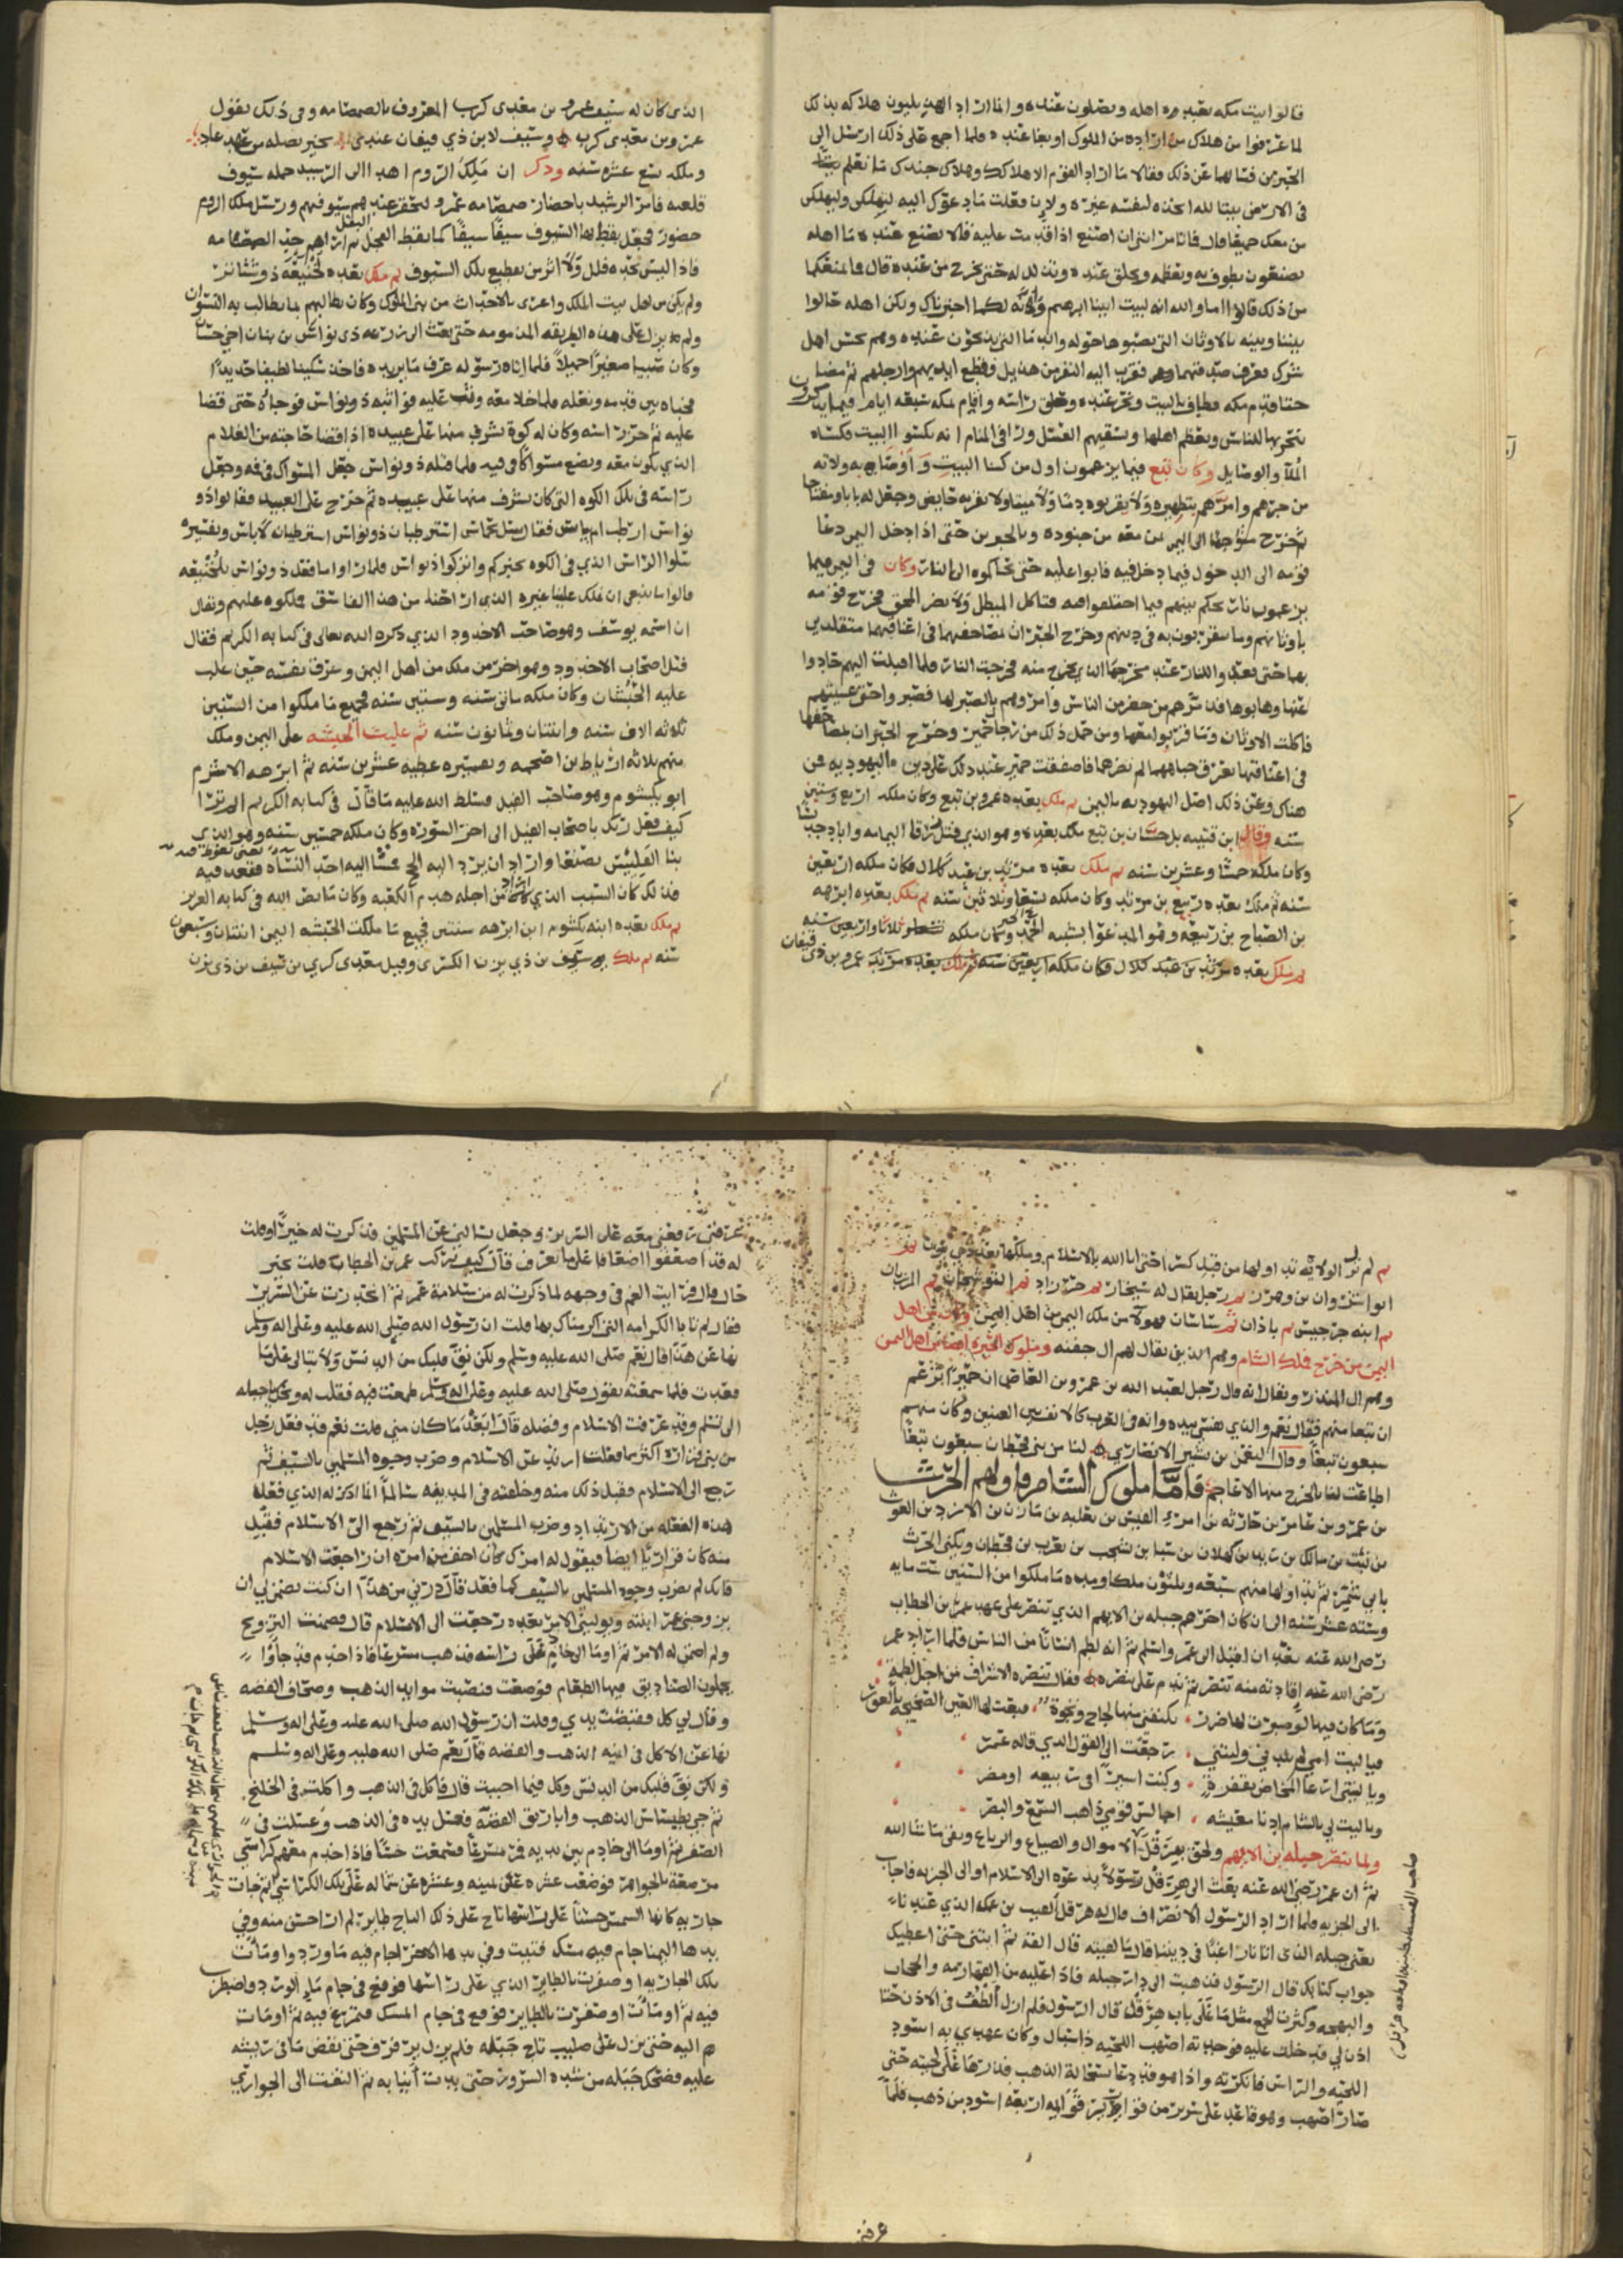 قالوا بيت مكه يعبده اهله ويصلون عنده وانما اراد الهذليون هلاكه بذلك
لما عرفوا من هلاك من اراده من الملوك او بغا عنده فلما اجمع على ذلك ارسل الى
الحبرين فسالهما عن ذلك فقالا ما اراد القوم الا هلاكك وهلاك جندك ما نعلم بيتا
فى الارض بيتا لله اتخذه لنفسه غيره ولان فعلت ما دعوك اليه ليهلكن وليهلكن
من معك جميعا قال فما تامرانى ان اصنع اذا قدمت عليه قالا تصنع عنده ما اهله
يصنعون يطوف به ويعظمه ويحلق عنده وتذلل له حتى تخرج من عنده قال فما منعكما
من ذلك قالا اما والله انه لبيت ابينا ابرهيم وانه لكما اخبرناك ولكن اهله حالوا
بيننا وبينه بالاوثان التى نصبوها حوله والدما التى يذبحون عنده وهم نجس اهل
شرك فعرف صدقهما فقرب اليه النفر من هذيل وقطع ايديهم وارجلهم ثم مضا
حتا قدم مكه فطاف بالبيت ونحر عنده وحلق راسه واقام بمكه سبعه ايام فيما يذكرون
ينحر بها للناس ويطعم اهلها ويسقيهم العسل ورا فى المنام انه يكسوا البيت فكساه
الملا والوصايل وكان تبع فيما يزعمون اول من كسا البيت واوصا به ولاته
من جرهم وامرهم بتطهيره ولا يقربوه دما ولا ميتا ولا تقربه حايض وجعل له بابا ومفتاحا
ثم خرج متوجها الى اليمن بمن معه من جنوده وبالحبرين حتى اذا دخل اليمن دعا
قومه الى الدخول فيما دخل فيه فابوا عليه حتى يحاكموه الى النار وكان فى اليمن فيما
يزعمون نار تحكم بينهم فيما اختلفوا فيه فتاكل المبطل ولا تضر المحق فخرج قومه
باوثانهم وما يتقربون به فى دينهم وخرج الحبران بمصاحفهما فى اعناقهما متقلدي
بها حتى قعدوا للنار عند مخرجها الذي تخرج منه فخرجت النار فلما اقبلت اليهم حادوا
عنها وهابوها فدمرهم من حضر من الناس وامروهم بالصبر لها فصبروا حتى غشيتهم
فاكلت الاوثان وما قربوا معها ومن حمل ذلك من رجال حمير وخرج الحبران بمصاحفهما
فى اعناقهما تعرق جباههما لم تضرهما فاصفقت حمير عند ذلك على دين اليهوديه فمن
هناك وعن ذلك اصل اليهوديه باليمن ثم ملك بعده عمرو بن تبع وكان ملكه اربع وستين
سنه وقال ابن قتيبه بل حسان بن تبع ملك بعده وهو الذي قتل زرقا اليمامه واباد جديسا
وكان ملكه خمسا وعشرين سنه ثم ملك بعده مرثد بن عبد كلال فكان ملكه اربعين
سنه ثم ملك بعده ربيع بن مرثد وكان ملكه تسعا وثلاثين سنه ثم ملك بعده ابرهه
بن الصباح بن ربيعه وهو المدعوا بشيبه الحمد وكان ملكه ثلاثا واربعين سنه
ثم ملك بعده مرثد بن عبد كلال فكان ملكه اربعين سنه ثم ملك بعده مرثد عمرو بن ذى قيفان
الذى كان له سيف عمرو بن معدى كرب المعروف بالصمصامه وفى ذلك يقول
عمرو بن معدى كرب وسيف لابن ذي قيفان عندى تخير نصله من عهد عاد
وملكه تسع عشره سنه وذكر ان ملك الروم اهدا الى الرشيد جمله سيوف
قلعيه فامر الرشيد باحضار صمصامه عمرو ليحقر عندهم سيوفهم ورسل ملك الروم
حضور فجعل يقط بها السيوف سيفا سيفا كما يقط الفجل ثم اراهم حد الصمصامه
فاذا ليس بحده فلل ولا اثر من تقطيع تلك السيوف ثم ملك بعده لخنيعه ذو شناتر
ولم يكن من اهل بيت الملك واغرى بالاحداث من بنى الملوك وكان يطالبهم بما يطالب به النسوان
ولم يزل على هذه الطريقه المذمومه حتى بعث الى زرعه ذى نواس بن تبان اخي حسان
وكان صبيا صغيرا جميلا فلما اتاه رسوله عرف ما يريده فاخذ سكينا لطيفا حديدا
فخباه بين قدمه ونعله فلما خلا معه وثب عليه فواثبه ذو نواس فوجاه حتى قضا
عليه ثم حز راسه وكان له كوة يشرف منها على عبيده اذا قضا حاجته من الغلام
الذي يكون معه ويضع مسواكا فى فيه فلما قتله ذو نواس جعل المسواك فى فه وجعل
راسه فى تلك الكوه التى كان يشرف منها على عبيده ثم خرج على العبيد فقالوا ذو
نواس ارطب ام يباس فقال سل نخاس استرطبان ذو نواس استرطبان لا باس وتفسيره
سلوا الراس الذي فى الكوه يخبركم واتركوا ذو نواس فلما راوا ما فعل ذو نواس بلخنيعه
قالوا ما ينبغى ان يملك علينا غيره الذى اراحنا من هذا الفاسق فملكوه عليهم ويقال
ان اسمه يوسف وهو صاحب الاخدود الذي ذكره الله تعالى فى كتابه الكريم فقال
قتل اصحاب الاخدود وهو اخر من ملك من اهل اليمن وغرق نفسه حين غلب
عليه الحبشان وكان ملكه ماتى سنه وستين سنه فجميع ما ملكوا من السنين
ثلاثه الاف سنه واثنتان وثمانون سنه ثم غلبت الحبشه على اليمن وملك
منهم ثلاثه ارياط بن اضحمه وتفسيره عطيه عشرين سنه ثم ابرهه الاشرم
ابو يكسوم وهو صاحب الفيل فسلط الله عليه ما قال فى كتابه الكريم الم تر
كيف فعل ربك باصحاب الفيل الى اخر السوره وكان ملكه خمسين سنه وهو الذي
بنا القليس بصنعا واراد ان يرد اليه الحج فمشا اليه احد النساة فقعد فيه
فذلك كان السبب الذي اراد من اجله هدم الكعبه وكان ما نص الله فى كتابه العزيز
ثم ملك بعده ابنه يكسوم ابن ابرهه سنتين فجميع ما ملكت الحبشه اليمن اثنتان وسبعون
سنه ثم ملك سيف بن ذي يزن الكسرى وقيل معدى كرب بن سيف بن ذى يزن
ثم لم تزل الولاة تداولها من قبل كسرا حتى اتا الله بالاسلام وملكها
انوا شروان بن وهرز ثم رجل يقال له سيحان ثم خرزاد ثم النوشجان ثم المرزبان
ثم ابنه خرخيس ثم باذان ثم ساسان فهولا من ملك اليمن من اهل اليمن ومن اهل
اليمن من خرج فملك الشام وهم الذين يقال لهم ال جفنه وملوك الحيره ايضا من اهل اليمن
وهم ال المنذر ويقال انه قال رجل لعبد الله بن عمرو بن العاص ان حميرا تزعم
ان تبعا منهم فقال نعم والذي نفسى بيده وانه فى العرب كالانف بين العينين وكان منهم
سبعون تبعا وقال النعمن بن بشير الانصاري لنا من بنى قحطان سبعون تبعا
اطاعت لنا بالخرج منها الاعاجم فاما ملوك الشام فاولهم الحرث
بن عمرو بن عامر بن حارثه بن امرئ القيس بن ثعلبه بن مازن بن الازد بن الغوث
من نبت بن مالك بن زيد بن كهلان بن سبا بن يشجب بن يعرب بن قحطان ويكنى الحرث
بابي شمر ثم تداولها منهم سبعه وثلثون ملكا ومده ما ملكوا من السنين ست مايه
وسته عشر سنه الى ان كان اخرهم جبله بن الايهم الذي تنصر على عهد عمر بن الخطاب
رضى الله عنه بعد ان اقبل الى عمر واسلم ثم انه لطم انسانا من الناس فلما اراد عمر
رضى الله عنه اقادته منه تنصر ثم ندم على تنصره فقال تنصره الاشراف من اجل لطمة
وما كان فيها لو صبرت لها ضرر تكنفنى منها لجاج ونخوة فبعت لها العين الصحيحه بالعور
فيا ليت امي لم تلدني وليتني رجعت الى القول الذي قاله عمر
ويا ليتني ارعا المخاض بقفرة وكنت اسيرا فى ربيعه او مضر
ويا ليت لي بالشام ادنا معيشه اجالس قومي ذاهب السمع والبصر
ولما تنصر جبله بن الايهم ولحق بهرقل الاموال والضياع والرباع وبقى ما شا الله
ثم ان عمر رضى الله عنه بعث الى هرقل رسولا يدعوه الى الاسلام او الى الجزيه فاجاب
الى الجزيه فلما اراد الرسول الانصراف قال له هرقل القيت بن عمك الذي عندنا
يعنى جبله الذى اتانا راغبا فى ديننا قال ما لقيته قال القه ثم ايتنى حتى اعطيك
جواب كتابك قال الرسول فذهبت الى دار جبله فاذا عليه من القهارمه والحجاب
والبهجه وكثرت الجمع مثل ما على باب هرقل قال الرسول فلم ازل الطف فى الاذن حتا
اذن لي فدخلت عليه فوجدته اصهب اللحيه ذا سبال وكان عهدي به اسود
اللحيه والراس فانكرته واذا هو قد دعا بسحالة الذهب فذرها على لحيته حتى
صار اصهب وهو قاعد على سرير من قوارير قوايمه اربعه اسود من ذهب فلما
صاحب القسطنطينيه
عرفنى
عرفنى رفعنى معه على السرير وجعل يسالني عن المسلمين فذكرت له خيرا وقلت
له قد اضعفوا اضعافا على ما تعرف قال كيف تركت عمر بن الخطاب قلت بخير
حال قال فرايت الغم فى وجهه لما ذكرت له من سلامة عمر ثم انحدرت عن السرير
فقال لم تابا الكرامه التى اكرمناك بها قلت ان رسول الله صلى الله عليه وعلى اله وسلم
نها عن هذا قال نعم صلى الله عليه وسلم ولكن نق قلبك من الدنس ولا تبالى على ما
قعدت فلما سمعته يقول صلى الله عليه وعلى اله وسلم طمعت فيه فقلت له ويحك يا جبله
الى تسلم وقد عرفت الاسلام وفضله قال ابعد ما كان مني قلت نعم قد فعل رجل
من بنى فزاره اكثر مما فعلت ارتد عن الاسلام وضرب وجوه المسلمين بالسيف ثم
رجع الى الاسلام فقبل ذلك منه وخلفته فى المدينه سالما
هذه الفعله من الارتداد وضرب المسلمين بالسيف ثم رجع الى الاسلام فقبل
منه كان فزاريا ايضا
فانك لم تضرب وجوه المسلمين بالسيف كما فعل قال ذرني من هذا ان كنت تضمن لي ان
يزوجنى عمر ابنته ويوليني الامر بعده رجعت الى الاسلام قال فضمنت التزويج
ولم اضمن له الامر ثم اوما الى خادم على راسه فذهب مسرعا فاذا خدم قد جاوا
يحملون الصناديق فيها الطعام فوضعت فنصبت موايد الذهب وصحاف الفضه
وقال لي كل فقبضت يدي وقلت ان رسول الله صلى الله عليه وعلى اله وسلم
نها عن الاكل فى انيه الذهب والفضه قال نعم صلى الله عليه وعلى اله وسلم
ولكن نق قلبك من الدنس وكل فيما احببت قال فاكل فى الذهب واكلت فى الخلنج
ثم جي بطساس الذهب واباريق الفضه فغسل يده فى الذهب وغسلت فى
الصفر ثم اوما الى خادم بين يديه فمر مسرعا فسمعت حسا فاذا خدم معهم كراسي
مرصعة بالجواهر فوضعت عشره عن يمينه وعشره عن شماله على تلك الكراسي ثم جات
جاريه كانها الشمس حسنا على راسها تاج على ذلك التاج طاير لم ار احسن منه وفي
يدها اليمنا جام فيه مسك فتيت وفي يدها الاخرا جام فيه ما ورد واومات
تلك الجاريه او صفرت بالطاير الذي على راسها فوقع فى جام ما الورد واضطرب
فيه ثم اومات او صفرت بالطاير فوقع فى جام المسك فتمرغ فيه ثم اومات
اليه حتى نزل على صليب تاج جبله فلم يزل يرفرف حتى نفض ما فى ريشه
عليه فضحك جبله من شده السرور حتى بدت انيابه ثم التفت الى الجواري